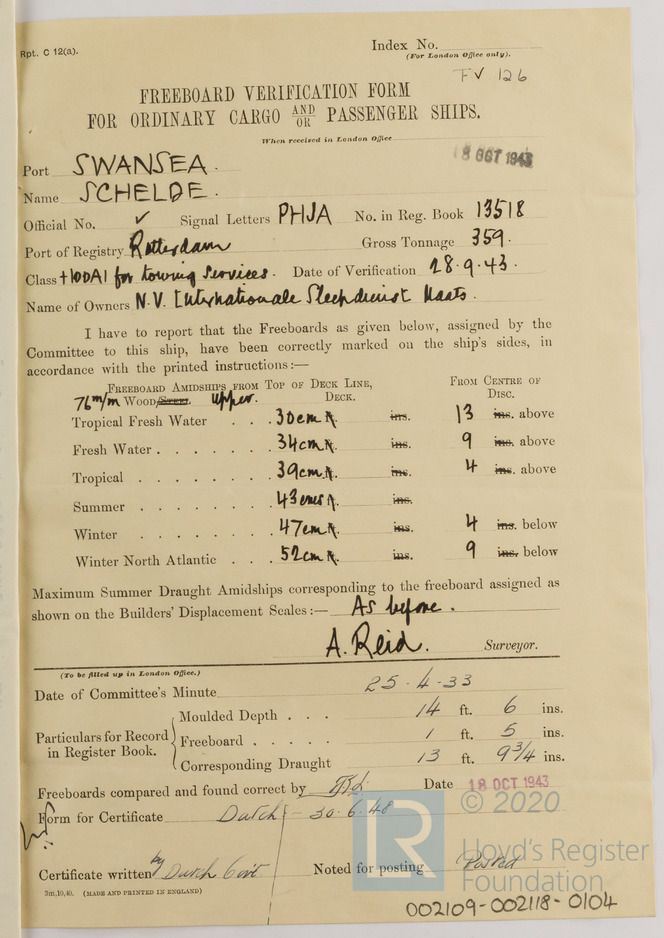 Rpt. C 12(a).
Index No.
(For London Office only).
FV 126
FREEBOARD VERIFICATION FORM
FOR ORDINARY CARGO AND/OR PASSENGER SHIPS.
When received in London Office
18 OCT 1943
Port SWANSEA.
Name SCHELDE.
Official No. ✓ Signal Letters PHJA No. in Reg. Book 13518
Port of Registry Rotterdam Gross Tonnage 359.
Class +100A1 for towing services. Date of Verification 28.9.43.
Name of Owners N.V. Internationale Sleepdienst Maats.
I have to report that the Freeboards as given below, assigned by the
Committee to this ship, have been correctly marked on the ship's sides, in
accordance with the printed instructions:—
FREEBOARD AMIDSHIPS FROM TOP OF DECK LINE, FROM CENTRE OF
76 m/m WOOD/STEEL upper. DECK. DISC.
Tropical Fresh Water . . . 30cm ft. ins. 13 ins. above
Fresh Water . . . . . . . 34cm ft. ins. 9 ins. above
Tropical . . . . . . . 39cm ft. ins. 4 ins. above
Summer . . . . . . . 43cms ft. ins.
Winter . . . . . . . 47cm ft. ins. 4 ins. below
Winter North Atlantic . . . 52cm ft. ins. 9 ins. below
Maximum Summer Draught Amidships corresponding to the freeboard assigned as
shown on the Builders' Displacement Scales:— As before.
A. Reid. Surveyor.
(To be filled up in London Office.)
Date of Committee's Minute 25-4-33
Particulars for Record in Register Book.
Moulded Depth . . . 14 ft. 6 ins.
Freeboard . . . . . 1 ft. 5 ins.
Corresponding Draught 13 ft. 9 3/4 ins.
Freeboards compared and found correct by Date 18 OCT 1943
Form for Certificate Dutch - 30.6.48
Certificate written by Dutch Govt Noted for posting Posted
3m,10,40. (MADE AND PRINTED IN ENGLAND)
LR © 2020
Lloyd's Register
Foundation
002109-002118-0104